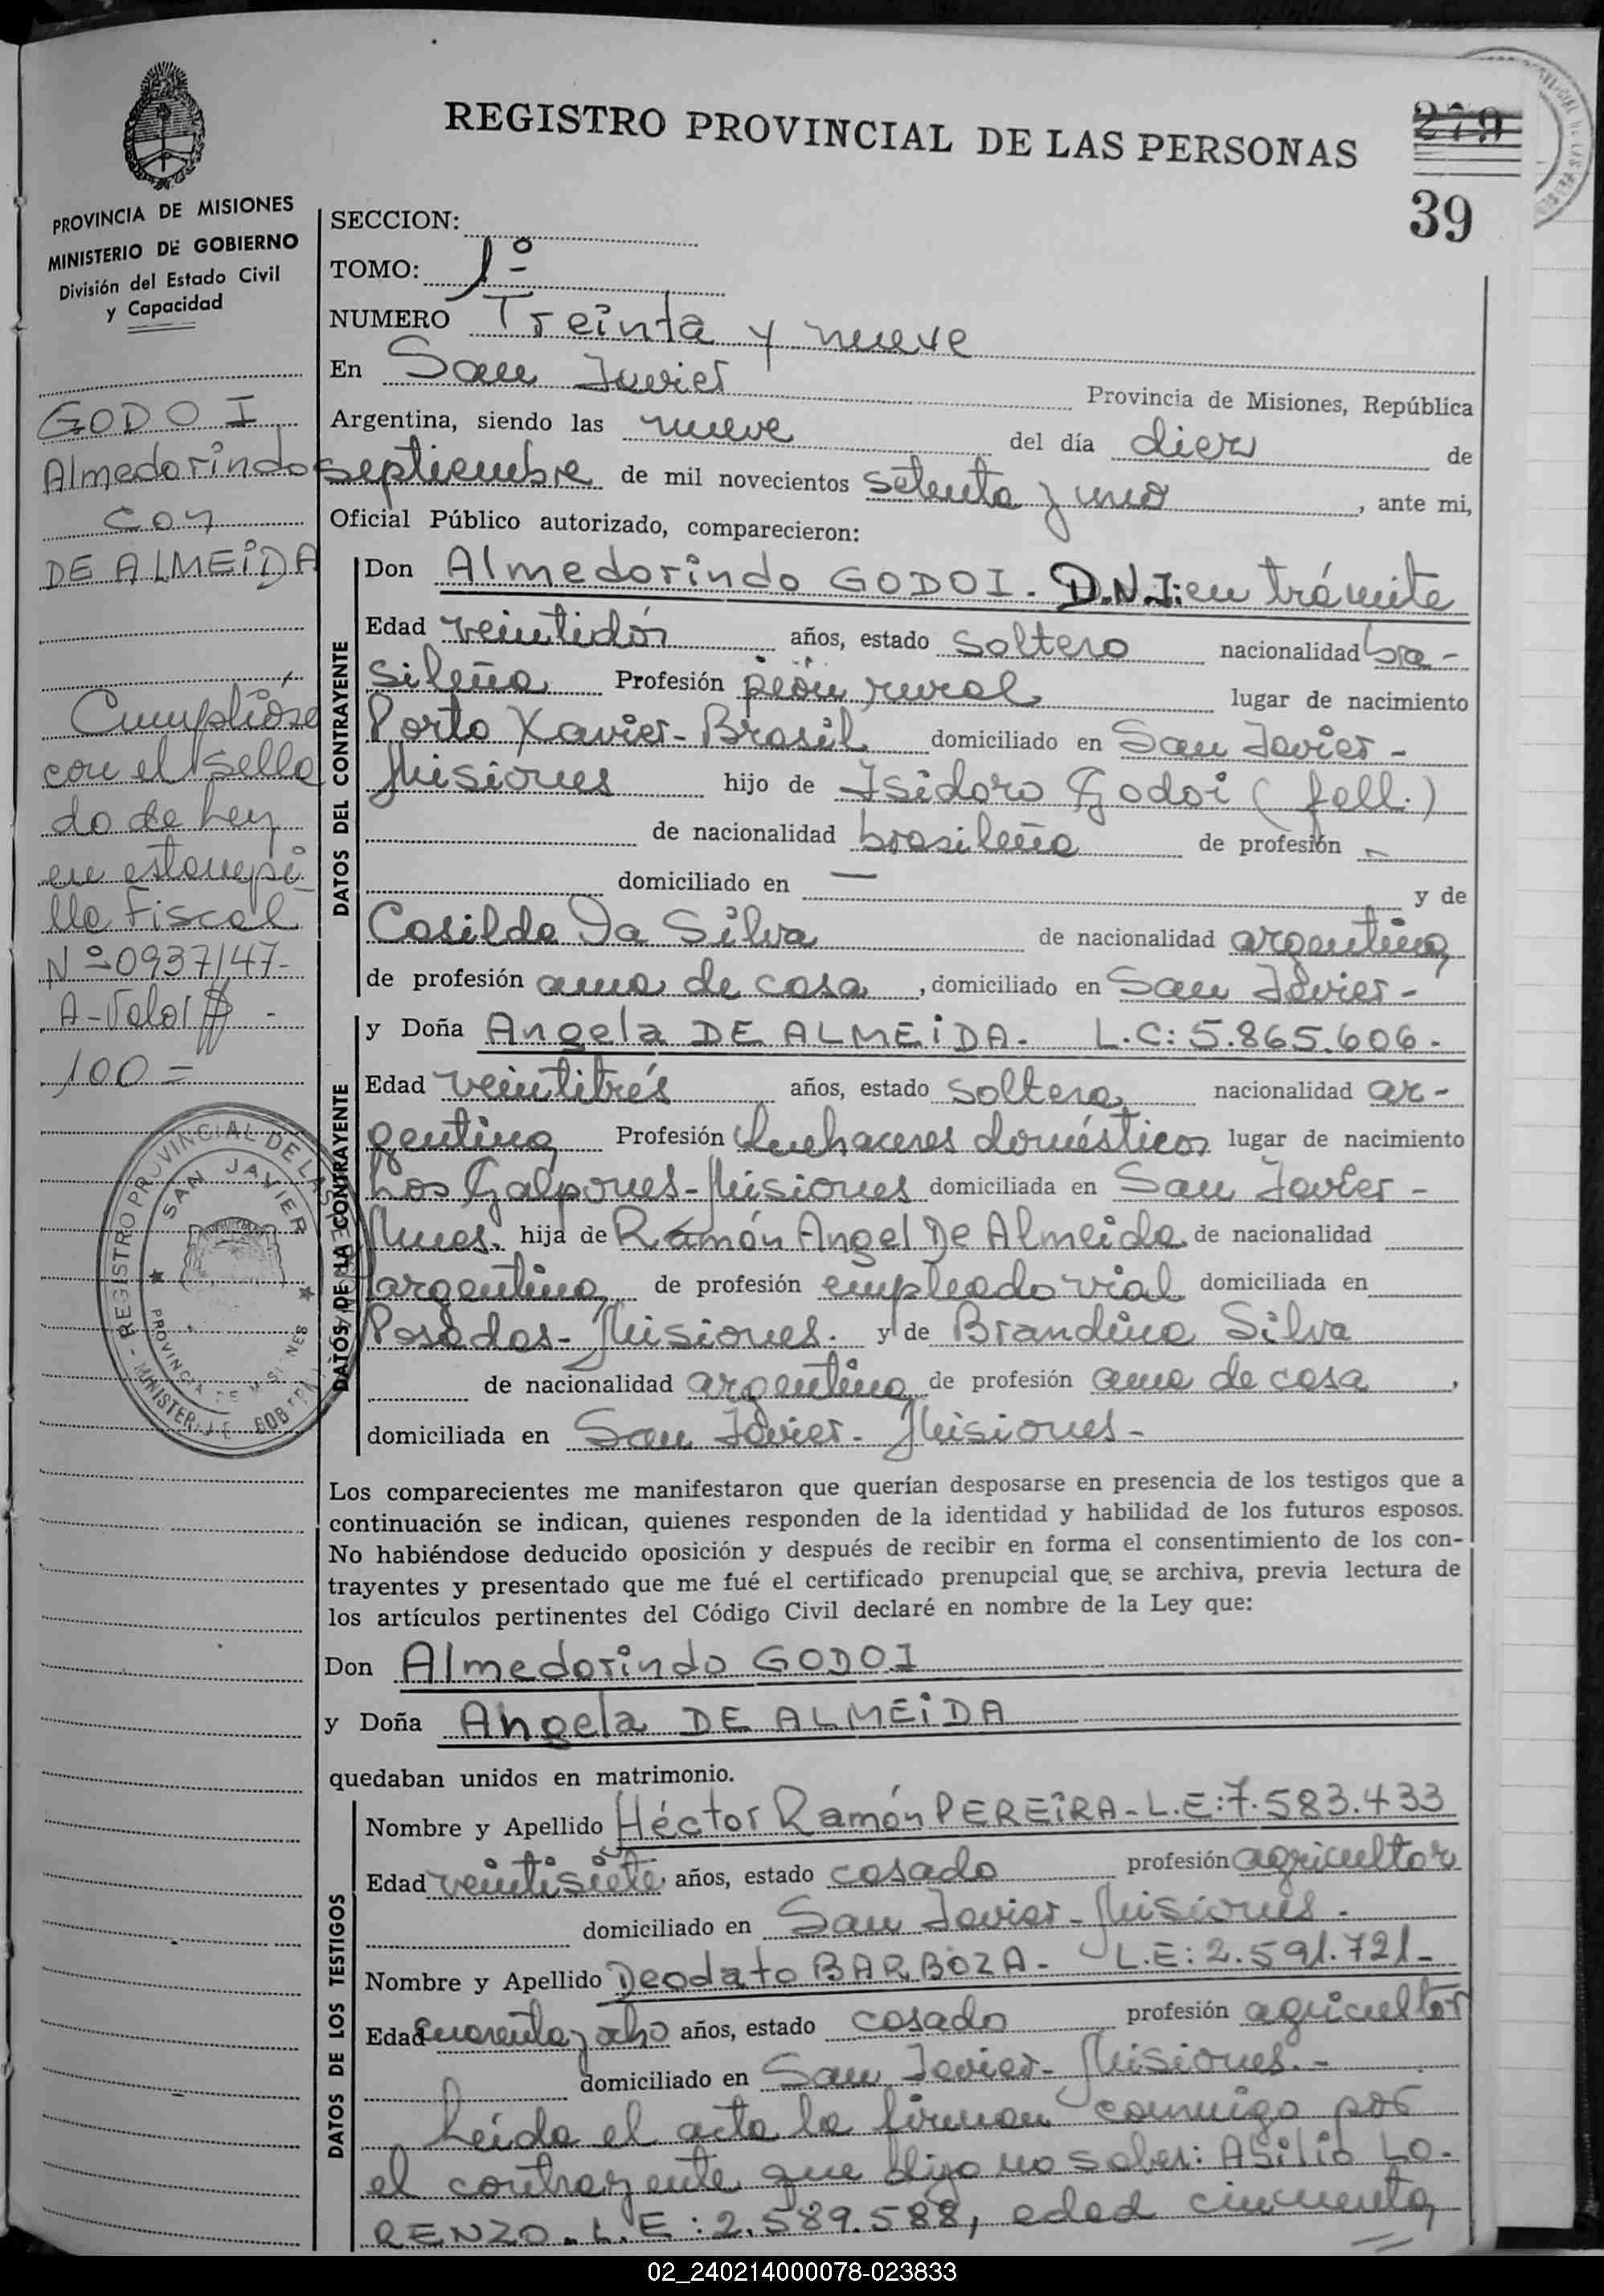 REGISTRO PROVINCIAL DE LAS PERSONAS
279
39
PROVINCIA DE MISIONES
MINISTERIO DE GOBIERNO
División del Estado Civil
y Capacidad
GODOI
Almedorindo
con
DE ALMEIDA
Cumplióse
con el sella
do de Ley
en estampi
lla Fiscal
Nº 0937147-
A-Valor $ -
100=
REGISTRO PROVINCIAL DE LAS
SAN JAVIER
PROVINCIA DE MISIONES
SECCION:
TOMO: 1º
NUMERO Treinta y nueve
En San Javier Provincia de Misiones, República
Argentina, siendo las nueve del día diez de
septiembre de mil novecientos setenta y uno, ante mi,
Oficial Público autorizado, comparecieron:
DATOS DEL CONTRAYENTE
Don Almedorindo GODOI. D.N.I: en trámite
Edad veintidós años, estado soltero nacionalidad bra-
sileña Profesión peón rural lugar de nacimiento
Porto Xavier-Brasil domiciliado en San Javier-
Misiones hijo de Isidoro Godoi (fall.)
de nacionalidad brasileña de profesión -
domiciliado en — y de
Casilda Da Silva de nacionalidad argentina
de profesión ama de casa, domiciliado en San Javier-
DATOS DE LA CONTRAYENTE
y Doña Angela DE ALMEIDA. L.C: 5.865.606.
Edad veintitrés años, estado soltera nacionalidad ar-
gentina Profesión Quehaceres domésticos lugar de nacimiento
Los Galpones-Misiones domiciliada en San Javier-
Mnes. hija de Ramón Angel De Almeida de nacionalidad
argentina de profesión empleado vial domiciliada en
Posadas-Misiones. y de Brandina Silva
de nacionalidad argentina de profesión ama de casa,
domiciliada en San Javier-Misiones-
Los comparecientes me manifestaron que querían desposarse en presencia de los testigos que a
continuación se indican, quienes responden de la identidad y habilidad de los futuros esposos.
No habiéndose deducido oposición y después de recibir en forma el consentimiento de los con-
trayentes y presentado que me fué el certificado prenupcial que se archiva, previa lectura de
los artículos pertinentes del Código Civil declaré en nombre de la Ley que:
Don Almedorindo GODOI
y Doña Angela DE ALMEIDA
quedaban unidos en matrimonio.
DATOS DE LOS TESTIGOS
Nombre y Apellido Héctor Ramón PEREIRA-L.E:7.583.433
Edad veintisiete años, estado casado profesión agricultor
domiciliado en San Javier-Misiones.
Nombre y Apellido Deodato BARBOZA- L.E: 2.591.721-
Edad cuarenta y ocho años, estado casado profesión agricultor
domiciliado en San Javier-Misiones.-
Leída el acta la firman conmigo por
el contrayente que dijo no saber: ASilio LO-
RENZO. L.E: 2.589.588, edad cincuenta
02_240214000078-023833